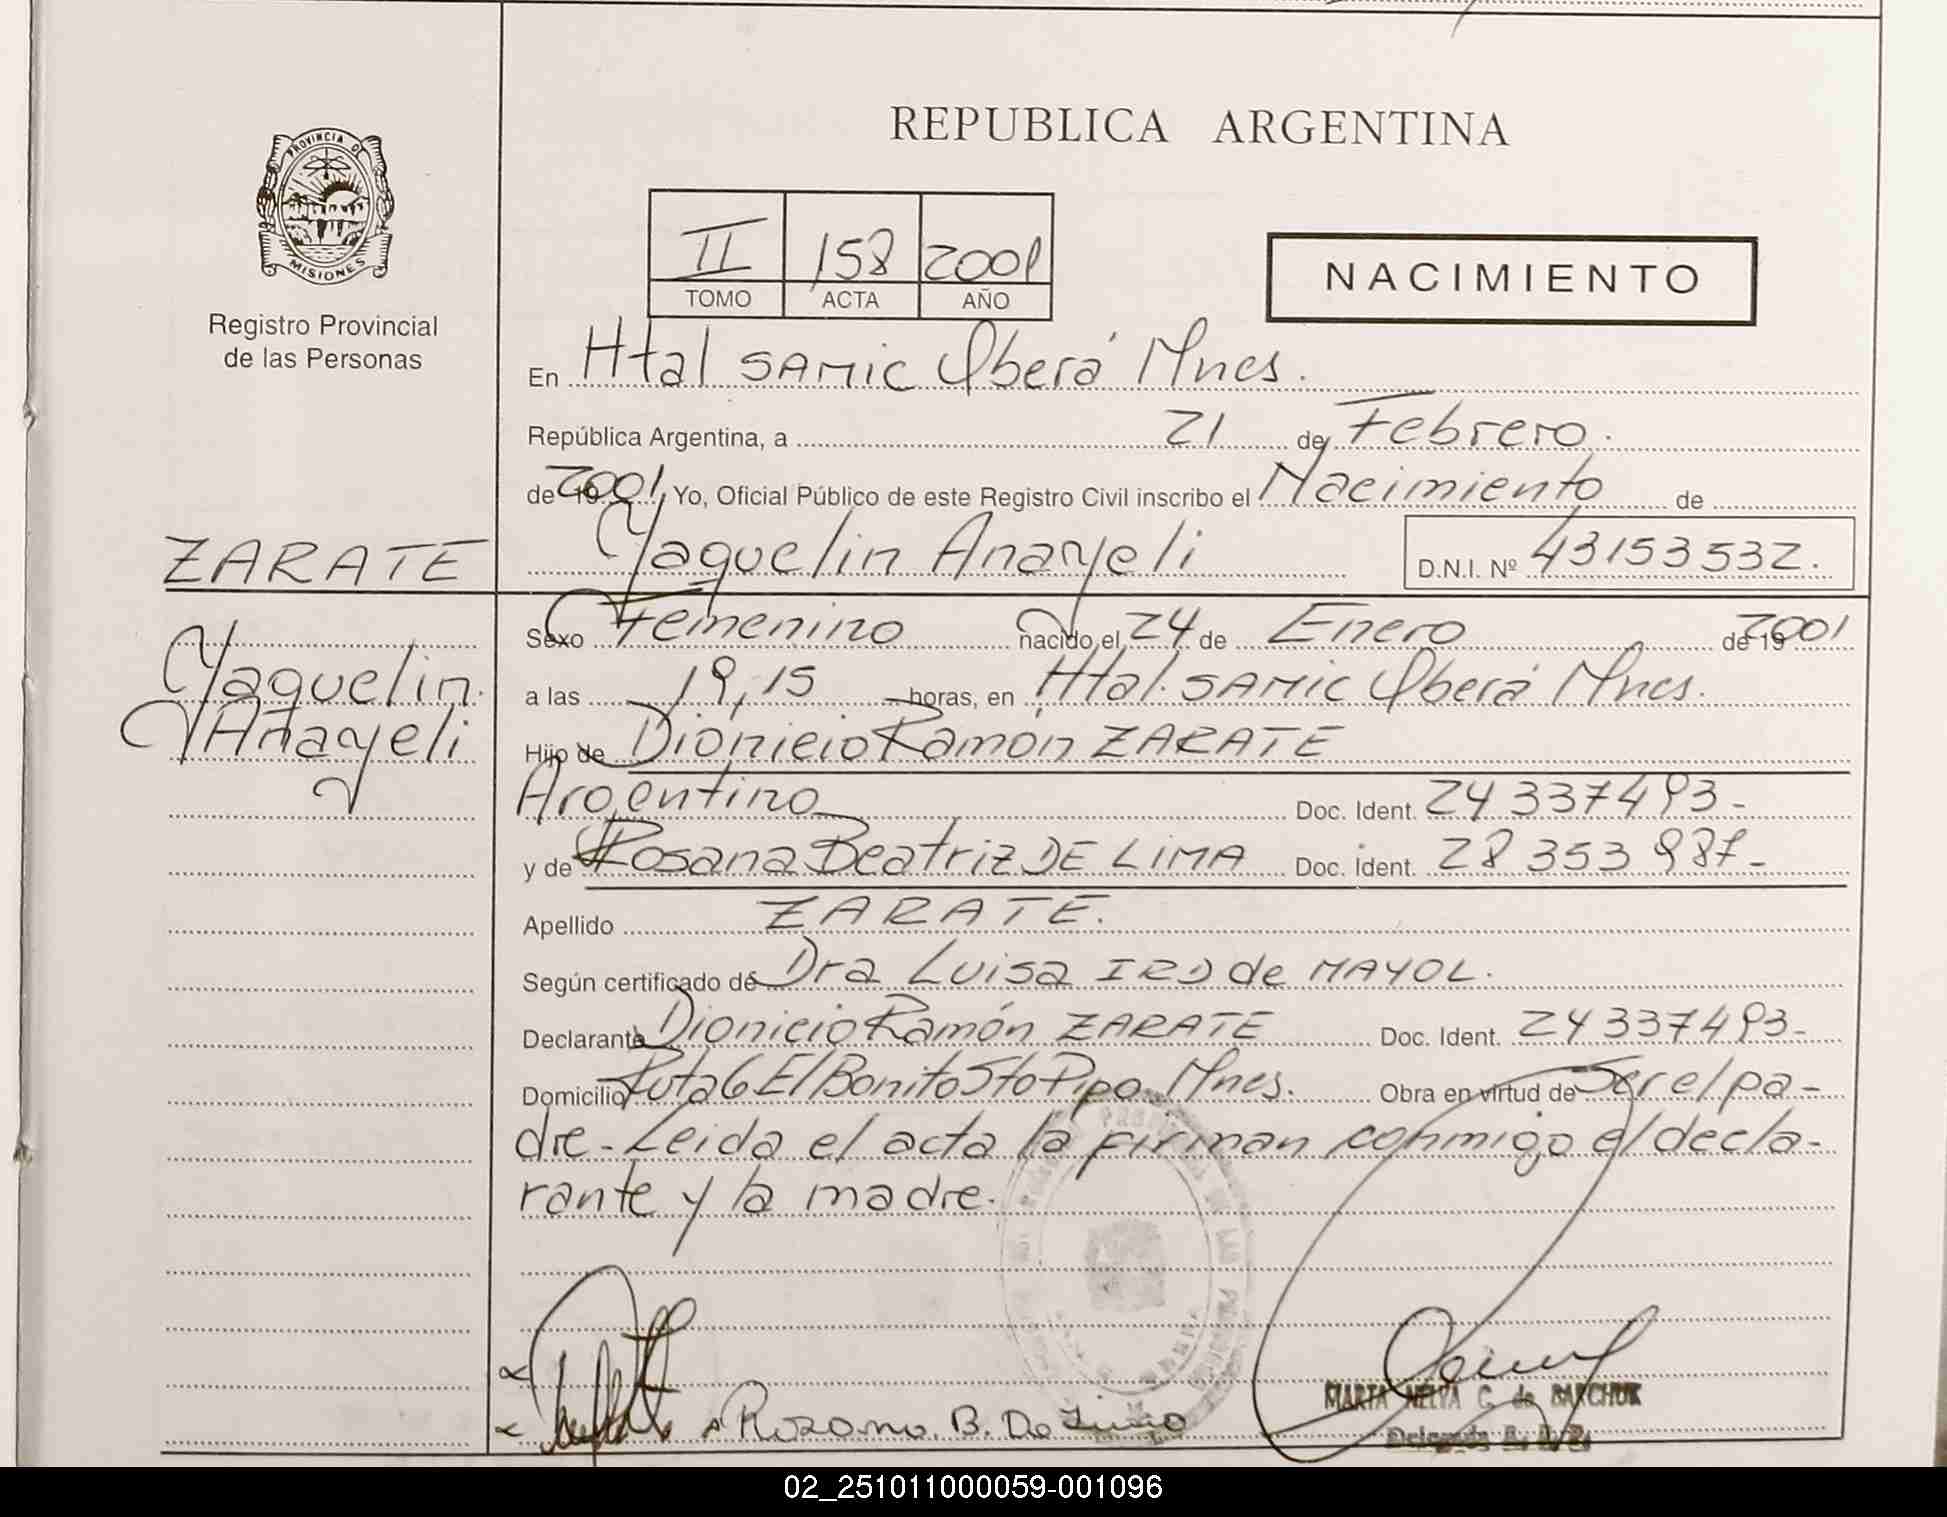 PROVINCIA DE
MISIONES
Registro Provincial
de las Personas
REPUBLICA ARGENTINA
II 158 2001
TOMO ACTA AÑO
NACIMIENTO
En Htal SAMIC Oberá Mnes.
República Argentina, a 21 de Febrero.
de 19 2001, Yo, Oficial Público de este Registro Civil inscribo el Nacimiento de
ZARATE
Yaquelin Anayeli D.N.I. Nº 43153532.
Yaquelin
Anayeli
Sexo Femenino nacido el 24 de Enero de 19 2001
a las 19,15 horas, en Htal. SAMIC Oberá Mnes.
Hijo de Dionicio Ramón ZARATE
Argentino Doc. Ident. 24 337493-
y de Rosana Beatriz DE LIMA Doc. ident. 28 353 987-
Apellido ZARATE.
Según certificado de Dra Luisa IRD de MAYOL.
Declarante Dionicio Ramón ZARATE Doc. Ident. 24 337493-
Domicilio Ruta 6 El Bonito Sto Pipo. Mnes. Obra en virtud de Ser el pa-
dre- Leida el acta la firman conmigo el decla-
rante y la madre.
MARTA NELVA C. de BARCHUK
Rozana. B. De Lima
02_251011000059-001096